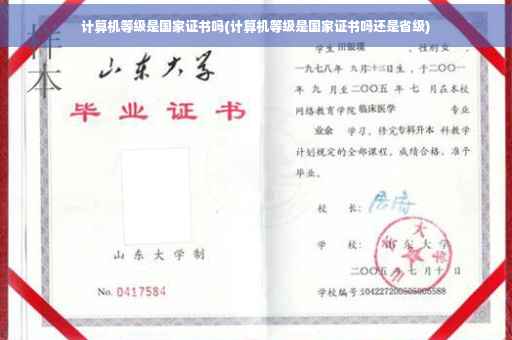 计算机等级是国家证书吗(计算机等级是国家证书吗还是省级)
样本
山东大学
毕业证书
山东大学制
No. 0417584
学生 田银璞 ，性别 女 ，
一九七八年 九月十三日生，于二〇〇一
年 九 月至二〇〇五 年 七 月在本校
网络教育学院 临床医学 专业
业余 学习，修完专科升本 科教学
计划规定的全部课程，成绩合格，准予
毕业。
校 长：
学 校：山东大学
二〇〇五 年 七 月 十 日
学校编号:104227200505005588